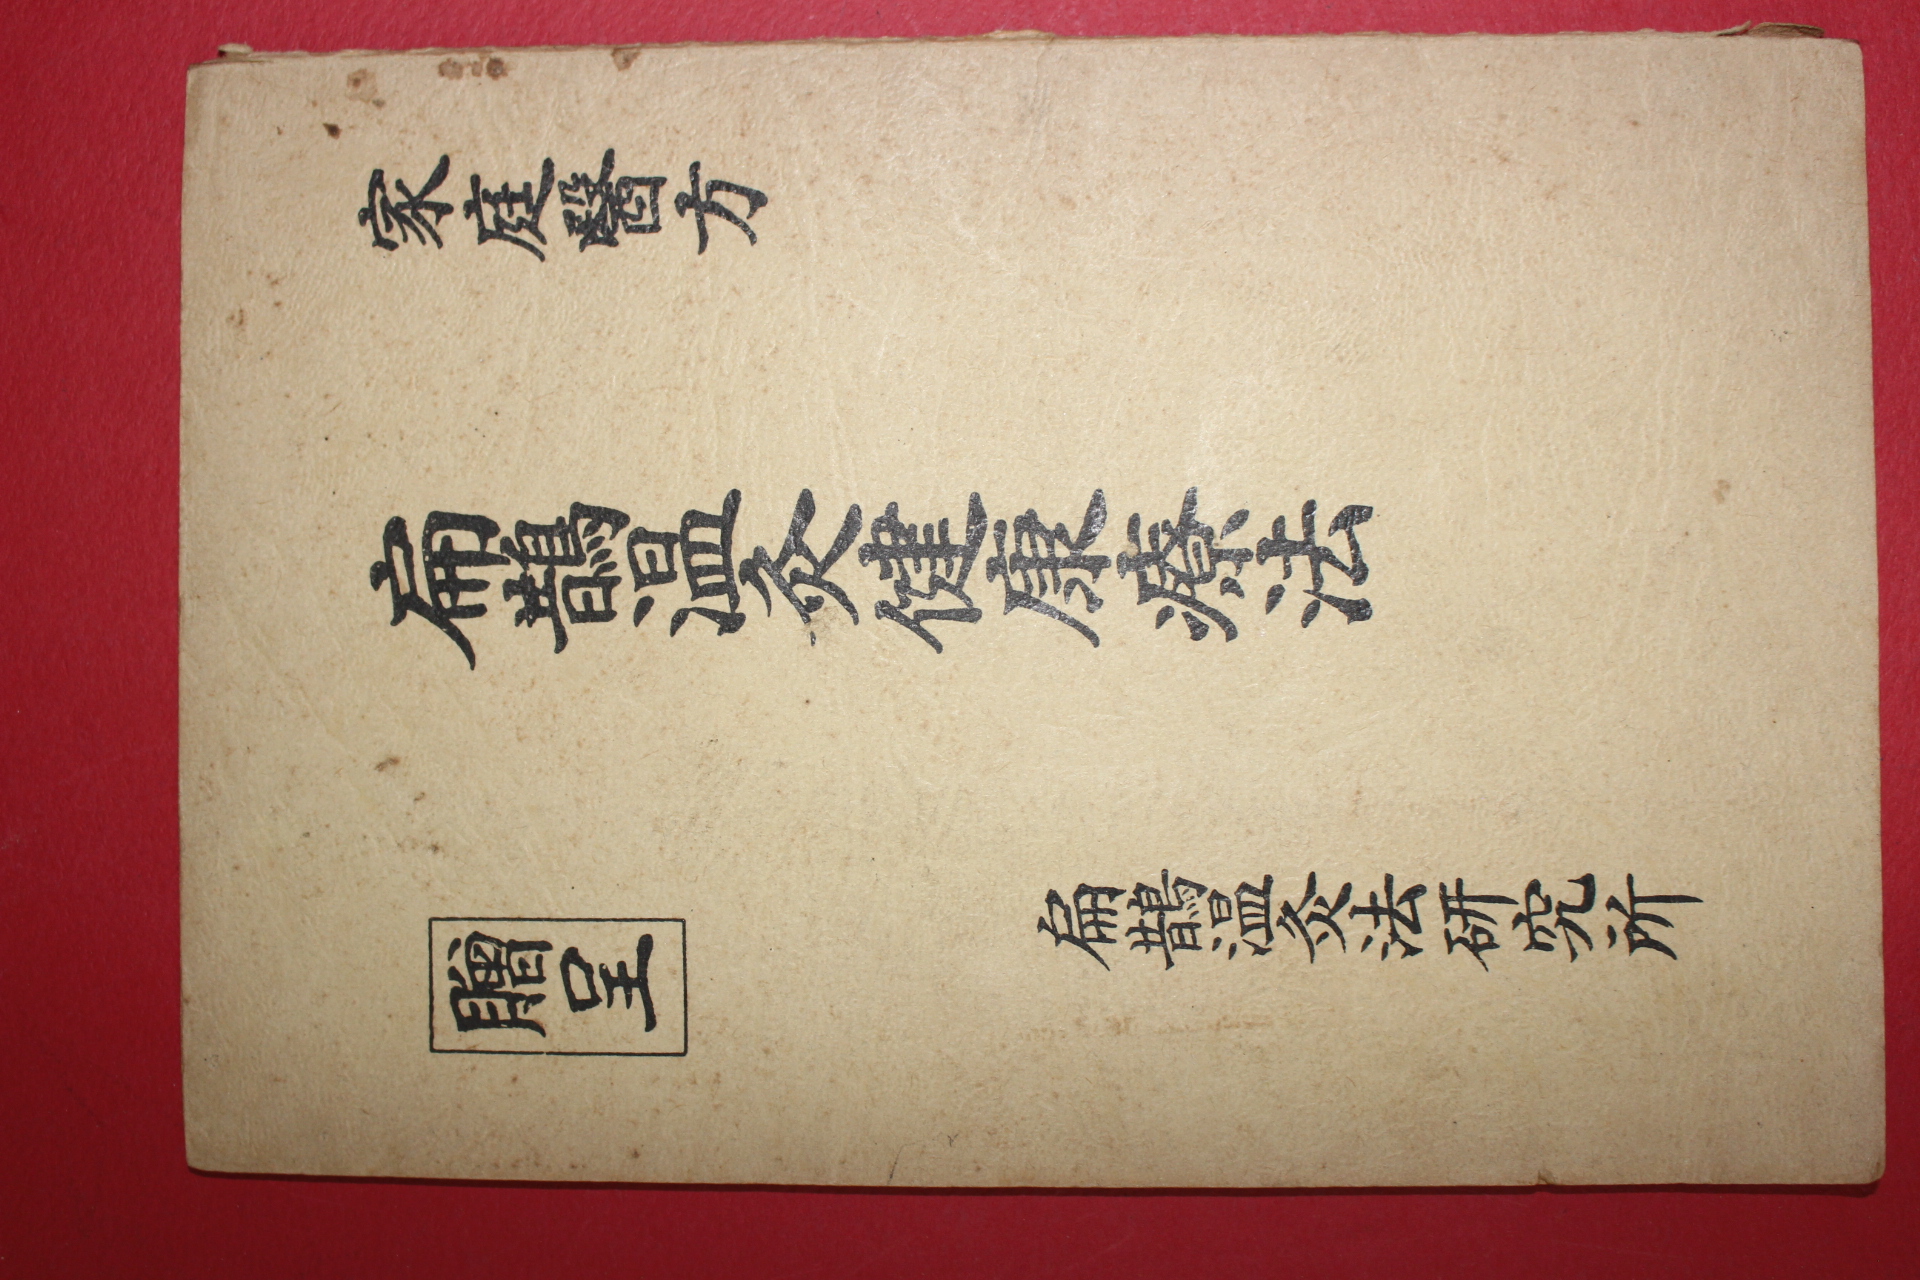 家庭醫方
扁鵲温灸健康療法
扁鵲温灸法研究所
贈呈